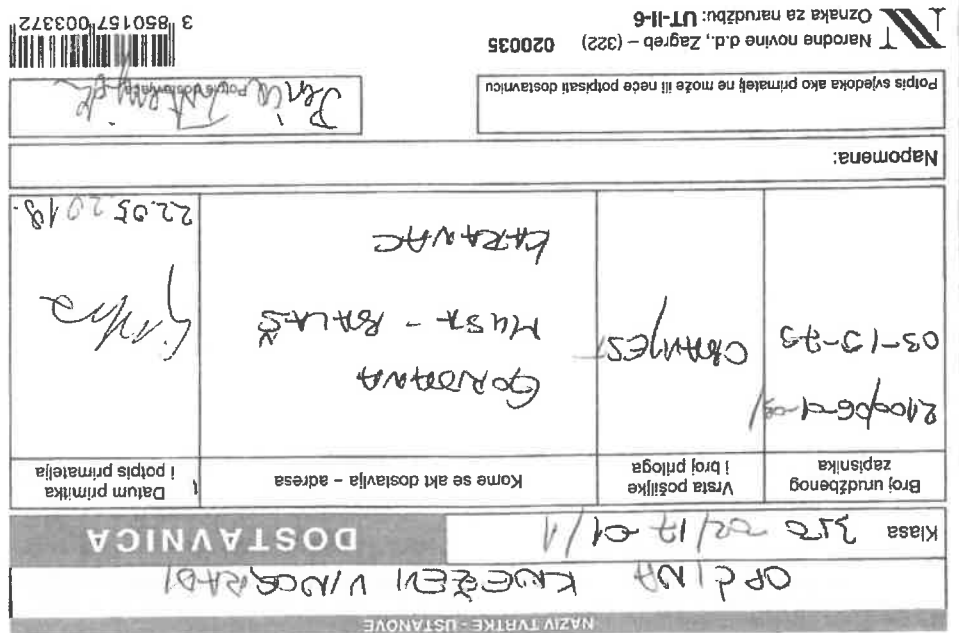 NAZIV TVRTKE - USTANOVE
OPĆINA KNEŽEVI VINOGRADI
Klasa 350-02/17-01/1
DOSTAVNICA
Broj urudžbenog zapisnika
Vrsta pošiljke i broj priloga
Kome se akt dostavlja – adresa
Datum primitka i potpis primatelja
2100/06-01-
03-19-73
OBAVIJEST
GORDANA
MUSA - BALAŠ
KARANAC
22.05.2019.
Napomena:
Potpis svjedoka ako primatelj ne može ili neće potpisati dostavnicu
Potpis dostavljača
Narodne novine d.d., Zagreb – (322) 020035
Oznaka za narudžbu: UT-II-6
3 850157 003372